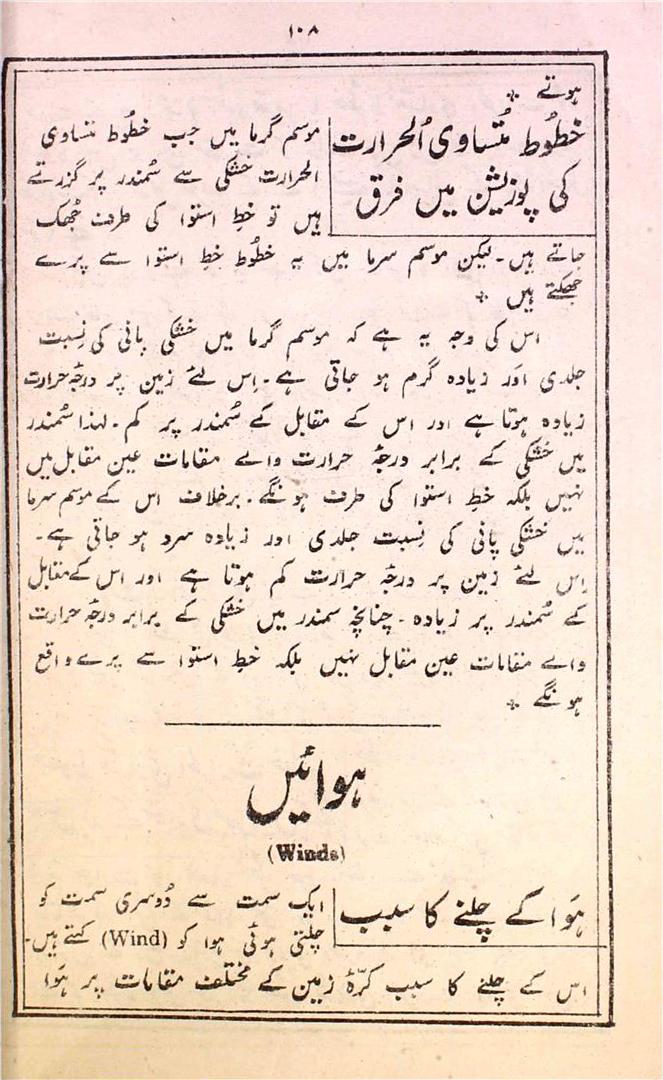 ۱۰۸
ہوتے ٭
خطُوط مُتساوی اُلحرارت
کی پوزیشن میں فرق
موسم گرما میں جب خطُوط متساوی
الحرارت خشکی سے سُمندر پر گزرتے
ہیں تو خطِ استوا کی طرف جُھک
جاتے ہیں۔ لیکن موسم سرما میں یہ خطُوط خطِ استوا سے پرے
جھکتے ہیں ٭
اس کی وجہ یہ ہے کہ موسم گرما میں خشکی پانی کی نِسبت
جلدی اَور زیادہ گرم ہو جاتی ہے۔ اِس لئے زمین پر درجۂ حرارت
زیادہ ہوتا ہے اور اس کے مقابل کے سُمندر پر کم۔ لہذا سُمندر
میں خشکی کے برابر درجۂ حرارت والے مقامات عین مقابل میں
نہیں بلکہ خطِ استوا کی طرف ہونگے۔ برخلاف اس کے موسم سرما
میں خشکی پانی کی نِسبت جلدی اور زیادہ سرد ہو جاتی ہے۔
اِس لئے زمین پر درجۂ حرارت کم ہوتا ہے اور اس کے مقابل
کے سُمندر پر زیادہ۔ چنانچہ سمندر میں خشکی کے برابر درجۂ حرارت
والے مقامات عین مقابل نہیں بلکہ خطِ استوا سے پرے واقع
ہونگے ٭
ہوائیں
(Winds)
ہَوا کے چلنے کا سبب
ایک سمت سے دُوسری سمت کو
چلتی ہوئی ہوا کو (Wind) کہتے ہیں۔
اس کے چلنے کا سبب کرّۂ زمین کے مختلف مقامات پر ہَوا